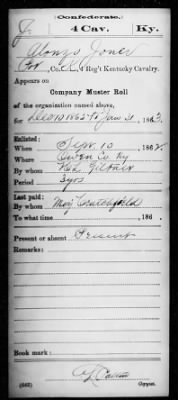 Confederate.
J 4 Cav. Ky.
Alonzo Jones
Co. , 4 Reg't Kentucky Cavalry.
Appears on
Company Muster Roll
of the organization named above,
for to Jan 31, 1863.
Enlisted:
When Sept. 10, 1862.
Where Owen Co Ky
By whom Giltner
Period 3 yrs
Last paid:
By whom Maj Crutchfield
To what time , 186 .
Present or absent Present
Remarks:
Book mark:
(642) Copyist.